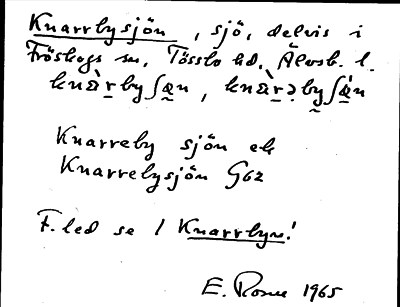 Knarrbysjön, sjö, delvis i
Fröskogs sn. Tössbo hd. Älvsb. l.
knàr̤by∫æ̤n, knàr̤əby̤∫æ̤̀n
Knarreby sjön ek
Knarrebysjön G62
F. led se / Knarrbyn!
E. 1965